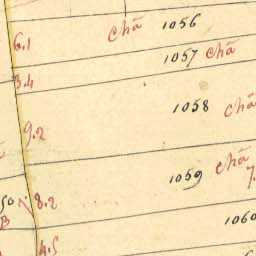 chã 1056
6.1
1057 chã
3.4
1058 chã
9.2
chã
1059
7.
8.2
50
B
1060
4.5